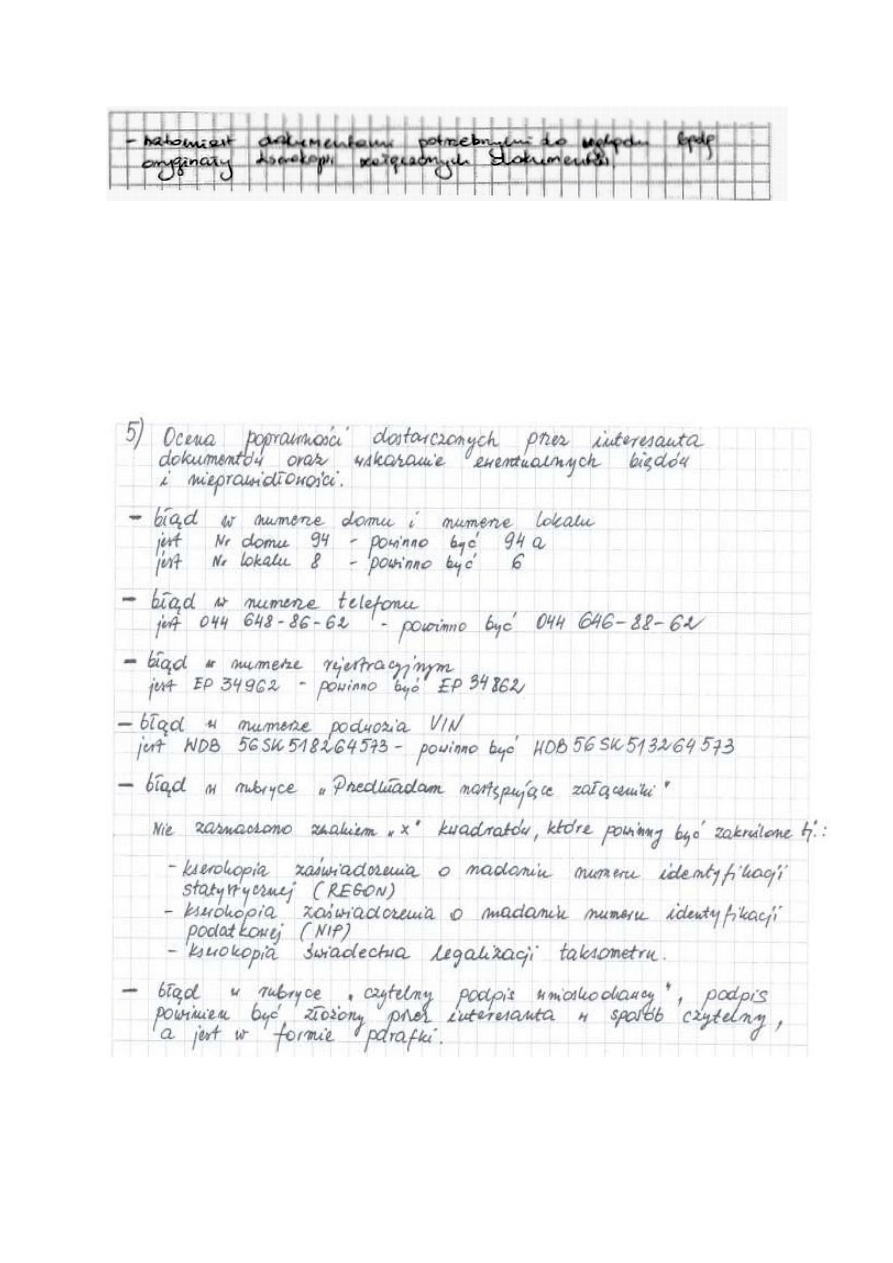 - natomiast dokumentami potrzebnymi do wglądu będą
oryginały kserokopii załączonych dokumentów.
5) Ocena poprawności dostarczonych przez interesanta
dokumentów oraz wskazanie ewentualnych błędów
i nieprawidłowości.
- błąd w numerze domu i numerze lokalu
jest Nr domu 94 - powinno być 94a
jest Nr lokalu 8 - powinno być 6
- błąd w numerze telefonu
jest 044 648-86-62 - powinno być 044 646-88-62
- błąd w numerze rejestracyjnym
jest EP 34962 - powinno być EP 34862
- błąd w numerze podwozia VIN
jest WDB 56SK518264573 - powinno być WDB56SK513264573
- błąd w rubryce „Przedkładam następujące załączniki"
Nie zaznaczono znakiem „x" kwadratów, które powinny być zakreślone tj.:
- kserokopia zaświadczenia o nadaniu numeru identyfikacji
statystycznej (REGON)
- kserokopia zaświadczenia o nadaniu numeru identyfikacji
podatkowej (NIP)
- kserokopia świadectwa legalizacji taksometru.
- błąd w rubryce „czytelny podpis wnioskodawcy", podpis
powinien być złożony przez interesanta w sposób czytelny,
a jest w formie parafki.